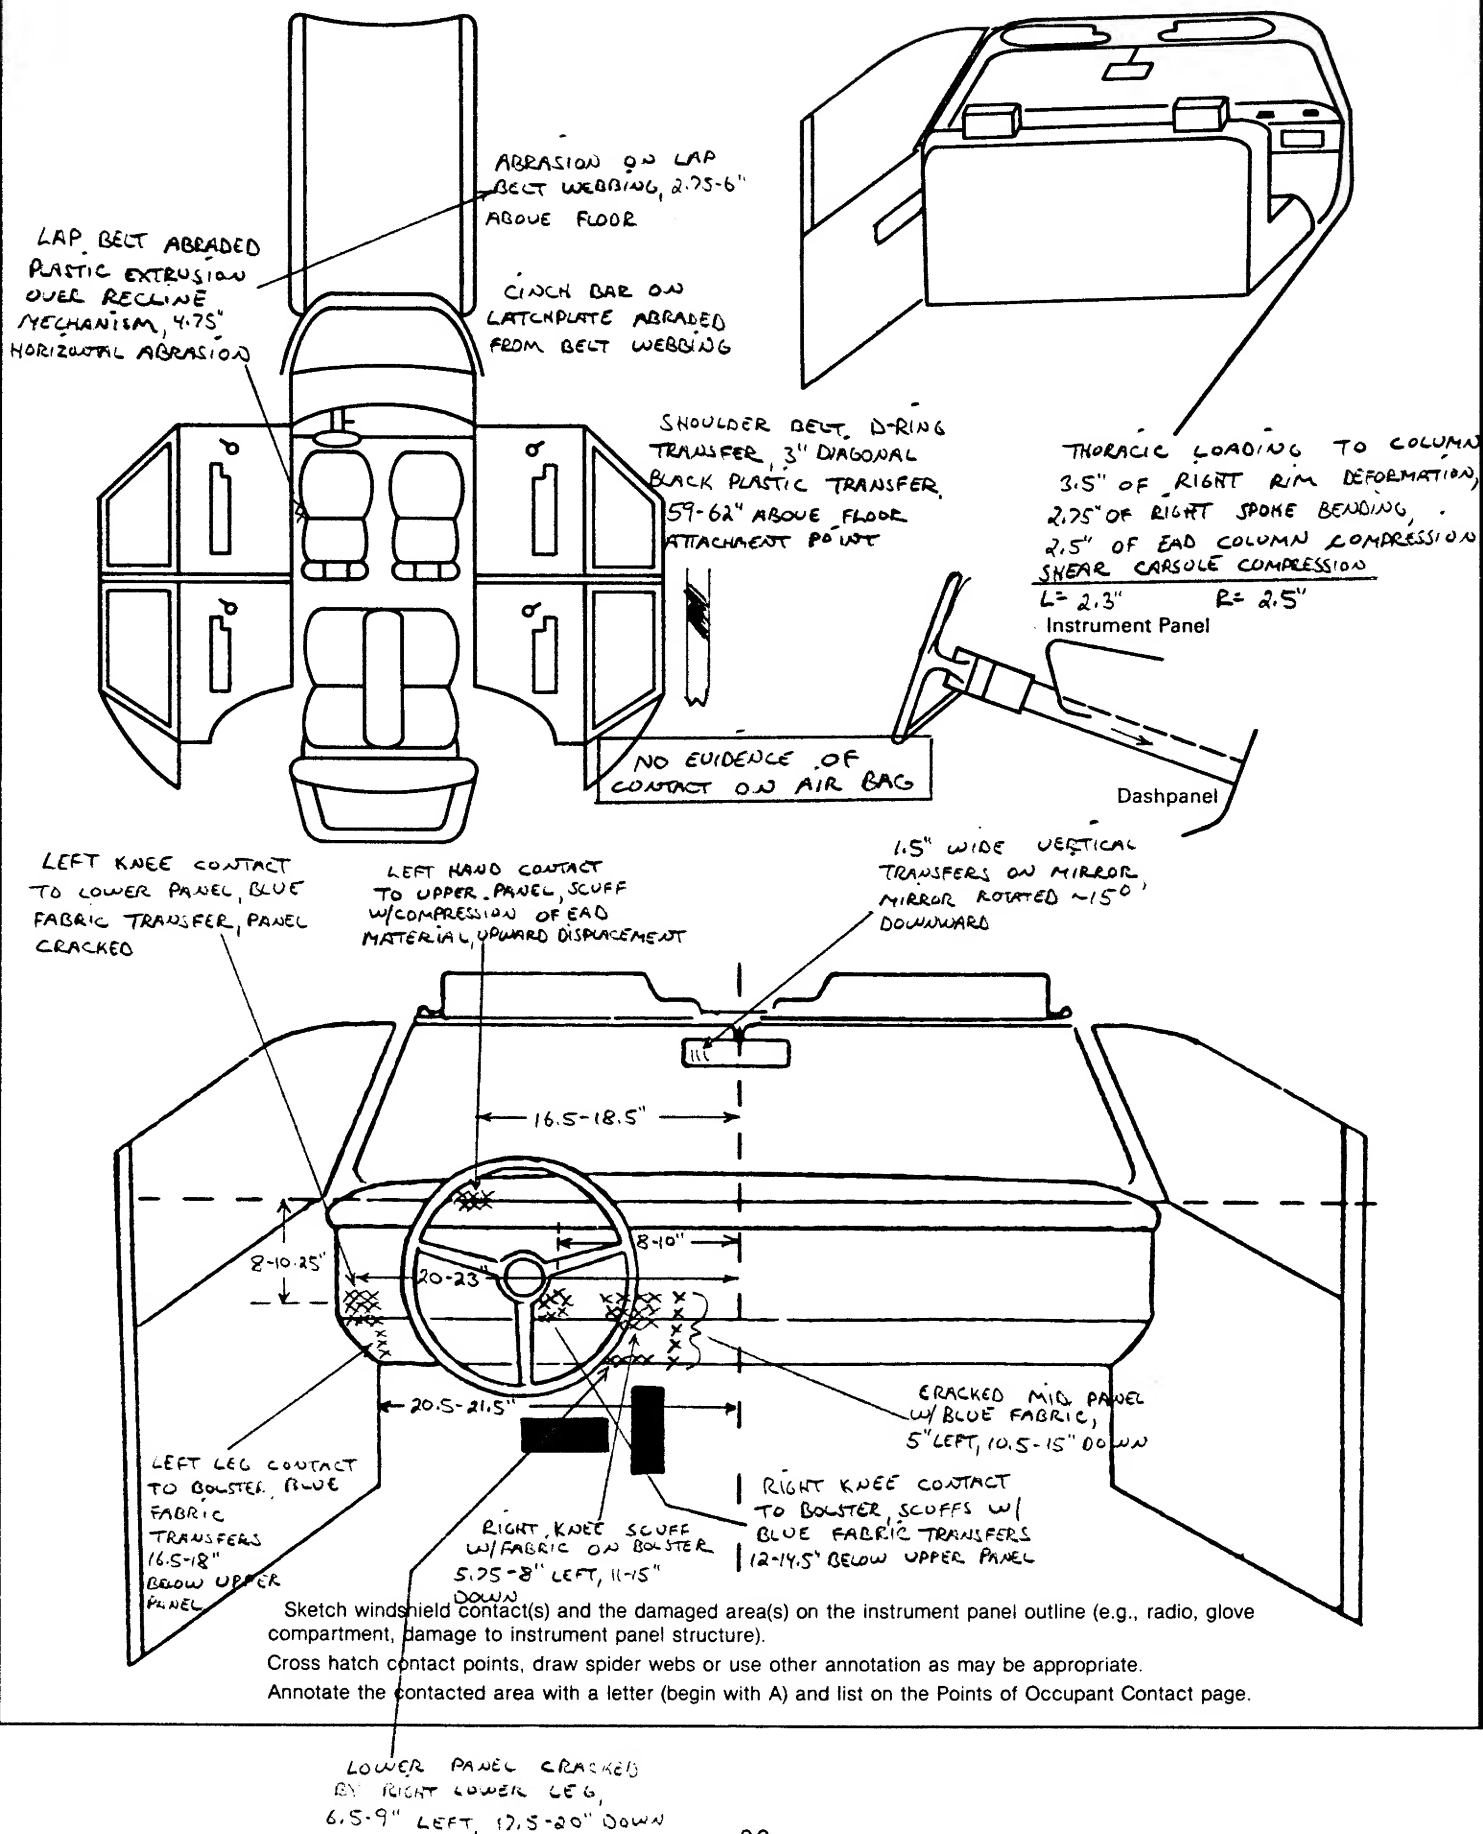 ABRASION ON LAP
BELT WEBBING, 2.75-6"
ABOVE FLOOR
LAP BELT ABRADED
PLASTIC EXTRUSION
OVER RECLINE
MECHANISM, 4.75"
HORIZONTAL ABRASION
CINCH BAR ON
LATCHPLATE ABRADED
FROM BELT WEBBING
SHOULDER BELT D-RING
TRANSFER, 3" DIAGONAL
BLACK PLASTIC TRANSFER,
59-62" ABOVE FLOOR
ATTACHMENT POINT
THORACIC LOADING TO COLUMN
3.5" OF RIGHT RIM DEFORMATION,
2.75" OF RIGHT SPOKE BENDING,
2.5" OF EAD COLUMN COMPRESSION
SHEAR CAPSULE COMPRESSION
L= 2.3" R= 2.5"
Instrument Panel
NO EVIDENCE OF
CONTACT ON AIR BAG
Dashpanel
LEFT KNEE CONTACT
TO LOWER PANEL, BLUE
FABRIC TRANSFER, PANEL
CRACKED
LEFT HAND CONTACT
TO UPPER PANEL, SCUFF
W/COMPRESSION OF EAD
MATERIAL, UPWARD DISPLACEMENT
1.5" WIDE VERTICAL
TRANSFERS ON MIRROR,
MIRROR ROTATED ~15°
DOWNWARD
16.5-18.5"
8-10"
8-10.25"
20-23"
20.5-21.5"
CRACKED MID PANEL
W/ BLUE FABRIC,
5" LEFT, 10.5-15" DOWN
LEFT LEG CONTACT
TO BOLSTER, BLUE
FABRIC
TRANSFERS
16.5-18"
BELOW UPPER
PANEL
RIGHT KNEE SCUFF
W/FABRIC ON BOLSTER
5.75-8" LEFT, 11-15"
DOWN
RIGHT KNEE CONTACT
TO BOLSTER, SCUFFS W/
BLUE FABRIC TRANSFERS
12-14.5" BELOW UPPER PANEL
Sketch windshield contact(s) and the damaged area(s) on the instrument panel outline (e.g., radio, glove
compartment, damage to instrument panel structure).
Cross hatch contact points, draw spider webs or use other annotation as may be appropriate.
Annotate the contacted area with a letter (begin with A) and list on the Points of Occupant Contact page.
LOWER PANEL CRACKED
BY RIGHT LOWER LEG,
6.5-9" LEFT, 17.5-20" DOWN